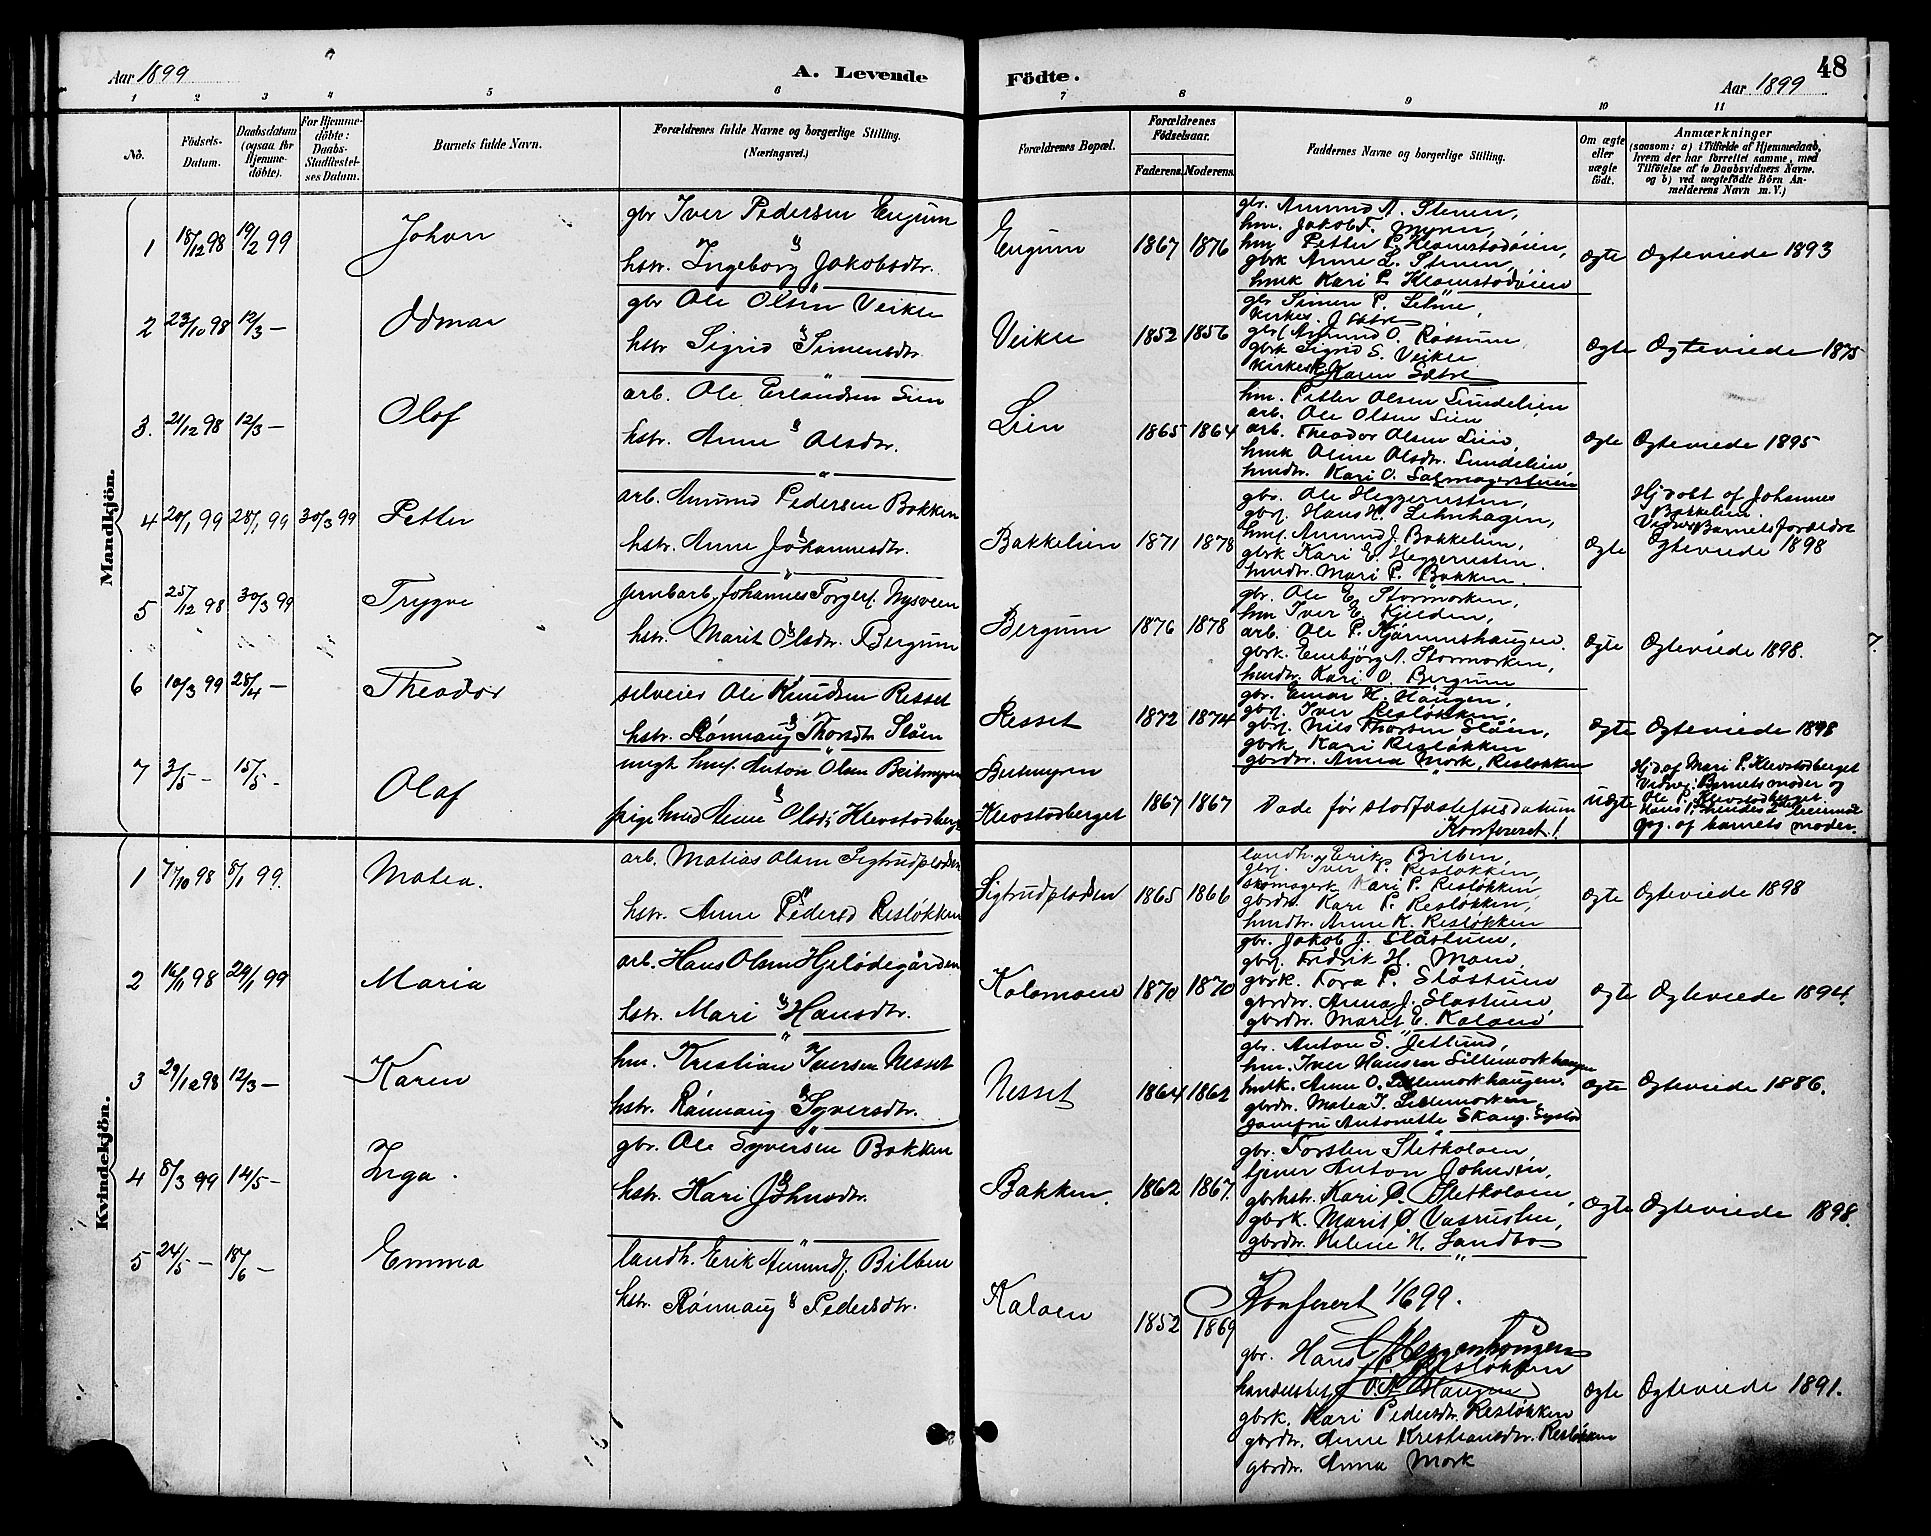 Aar 1899
A. Levende Födte.
48
Aar 1899
1 2 3 4 5 6 7 8 9 10 11
No.
Födsels-Datum.
Daabsdatum (ogsaa for Hjemmedöbte).
For Hjemmedöbte: Daabs-Stadfæstelses Datum.
Barnets fulde Navn.
Forældrenes fulde Navne og borgerlige Stilling. (Næringsvei.)
Forældrenes Bopæl.
Forældrenes Födselsaar.
Faderens. Moderens.
Faddernes Navne og borgerlige Stilling.
Om ægte eller uægte født.
Anmærkninger (saasom: a) i Tilfælde af Hjemmedaab, hvem der har forrettet samme, med Tilföielse af to Daabsvidners Navne. og b) ved uægtefödte Börn Anmelderens Navn m. V.)
Mandkjön.
1 18/12 98 19/2 99 Johan
gbr Iver Pedersen Engum
&
hstr. Ingeborg Jakobsdtr.
Engum 1867 1876
gbr. Amund A. Stenen,
hm. Jakob F. Myren,
hm Petter P. Klomstadøien,
gbrk Anne L. Stenen,
hmk Kari P. Klomstadøien
ægte Ægteviede 1893
2 23/10 98 12/3 — Odmar
gbr Ole Olsen Veikle
&
hstr Sigrid Simensdtr
Veikle 1852 1856
gbr Simen P. Lehne,
Kirkes. J Sætre
gbrf Amund O. Røssum
gbrk Sigrid S. Veikle
Kirkesk. Karen Sætre
ægte Ægteviede 1875
3. 21/12 98 12/3 — Olaf
arb. Ole Erlandsen Lien
&
hstr. Anne Olsdtr.
Lien 1865 1864
hm. Petter Olsen Sundelien
arb. Ole Olsen Lien
arb. Theodor Olsen Lien,
hmk Oline Olsdtr. Sundelien,
hmdtr. Kari O. Salmagerstuen
ægte Ægteviede 1895
4 20/1 99 28/1 99 30/3 99 Petter
arb. Amund Pedersen Bakken
&
hstr. Anne Johannesdtr.
Bakkelien 1871 1878
gbr. Ole Heggerusten,
gbrf. Hans H. Lehnhagen,
hmf. Amund J. Bakkelien,
gbrk Kari E. Heggerusten.
hmdtr. Mari P. Bakken.
ægte
Hjdøbt af Johannes
Bakkelien
Vidner Barnets forældre
Ægteviede 1898
5 25/12 98 30/3 99 Trygve
jernbarb. Johannes Torgerf. Nysveen
&
hstr. Marit Olsdtr. Bergum
Bergum 1876 1878
gbr. Ole E. Stormorken,
hm Iver E. Kjelden,
arb. Ole P. Kjørumshaugen.
gbrk. Embjörg A. Stormorken,
hmdtr. Kari O. Bergum
ægte Ægteviede 1898.
6 10/3 99 28/4 — Theodor
selveier Ole Knudsen Resset
&
hstr. Rönnaug Thorsdtr Slåen
Resset 1872 1874
gbr. Einar H. Haugen,
gbrf. Iver Resløkken,
gbrf. Nils Thorsen Slåen,
gbrk Kari Resløkken
gbrdtr. Anna Mork, Resløkken
ægte Ægteviede 1898
7 3/5 — 15/5 — Olaf
ungk hmf. Anton Olsen Beitmyren
&
pige hmd Anne Olsdtr Klevstadberget
Beitmyren
Klevstadberget 1867 1867
Døde før stadfæstelsesdatum
Konfereret!
uægte
Hjd af Mari P. Klevstadberget
Vidner: Barnets moder og
Ole P. Klevstadberget.
Hans & hendes 2det leiermål
Opg. af barnets moder.
Kvindekjön.
1 7/10 98 8/1 99. Matea.
arb. Matias Olsen Sigtrudpladsen
&
hstr. Anne Pedersd Resløkken
Sigtrudpladsen 1865 1866
landh. Erik Bilben,
gbrf. Iver P. Resløkken,
skomagerk Kari P. Resløkken,
gbrdtr. Kari P. Resløkken,
hmdtr. Anne K. Resløkken
ægte Ægteviede 1898
2 16/11 98 29/1 99 Maria
arb. Hans Olsen Hjelödegården
&
hstr. Mari Hansdtr.
Kolomoen 1870 1870
gbr. Jakob J. Slåstuen,
gbrf. Fredrik H. Moen,
gbrk. Tora P. Slåstuen
gbrdtr. Anna J. Slåstuen
gbrdtr. Marit E. Kaloen
ægte Ægteviede 1894.
3 29/12 98 12/3 — Karen
hm. Kristian Iversen Nesset
&
hstr. Rönnaug Syversdtr.
Nesset 1864 1862
gbr. Anton S. Jetlund,
hm. Iver Hansen Lillemorkhaugen
hmk. Anne O. Lillemorkhaugen.
gbrdtr. Matea I. Lillemorken,
Jomfru Antonette Skaug. Eystad
ægte Ægteviede 1886.
4 8/3 99 14/5 — Inga.
gbr. Ole Syversen Bakken
&
hstr. Kari Johnsdtr.
Bakken. 1862 1867.
gbr. Torsten Sletkoløen,
tjener Anton Johnsen,
gbrhstr. Kari Ø. Sletkoløen,
gbrk. Marit Ø. Vasrusten,
gbrdtr. Helene H. Sandbo
ægte Ægteviede 1898.
5 24/5 — 18/6 — Emma
landh. Erik Amundf. Bilben
hstr. Rönnaug & Pedersdtr.
Kaloen 1852 1869
Konfereret 1/6 99.
gbr. Hans P. Resløkken
handelsbet. O. H. Haugen
gbrk. Kari Pedersdtr. Resløkken
gbrdtr. Anne Kristiansdtr. Resløkken
gbrdtr. Anna Mork
ægte Ægteviede 1891.